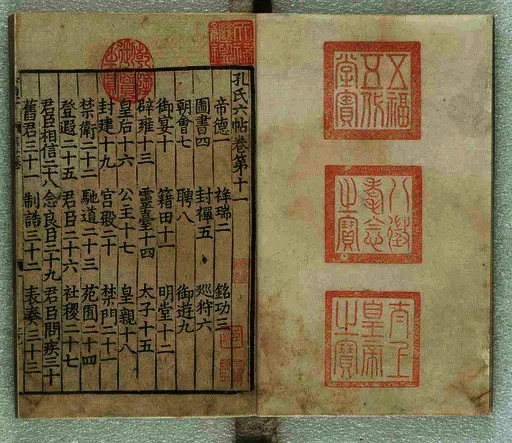 五福
五代
堂寶
八徵
耄念
之寶
太上
皇帝
之寶
孔氏六帖卷第十一
帝德一 祥瑞二 銘功三
圖書四 封禪五 巡狩六
朝會七 聘八 御遊九
御宴十 籍田十一 明堂十二
辟雍十三 靈臺十四 太子十五
皇后十六 公主十七 皇親十八
封建十九 宮殿二十 禁門二十一
禁衛二十二 馳道二十三 苑囿二十四
登遐二十五 君臣二十六 社稷二十七
君臣相信二十八 念良臣二十九 君臣問疾三十
舊君三十一 制誥三十二 表奏三十三